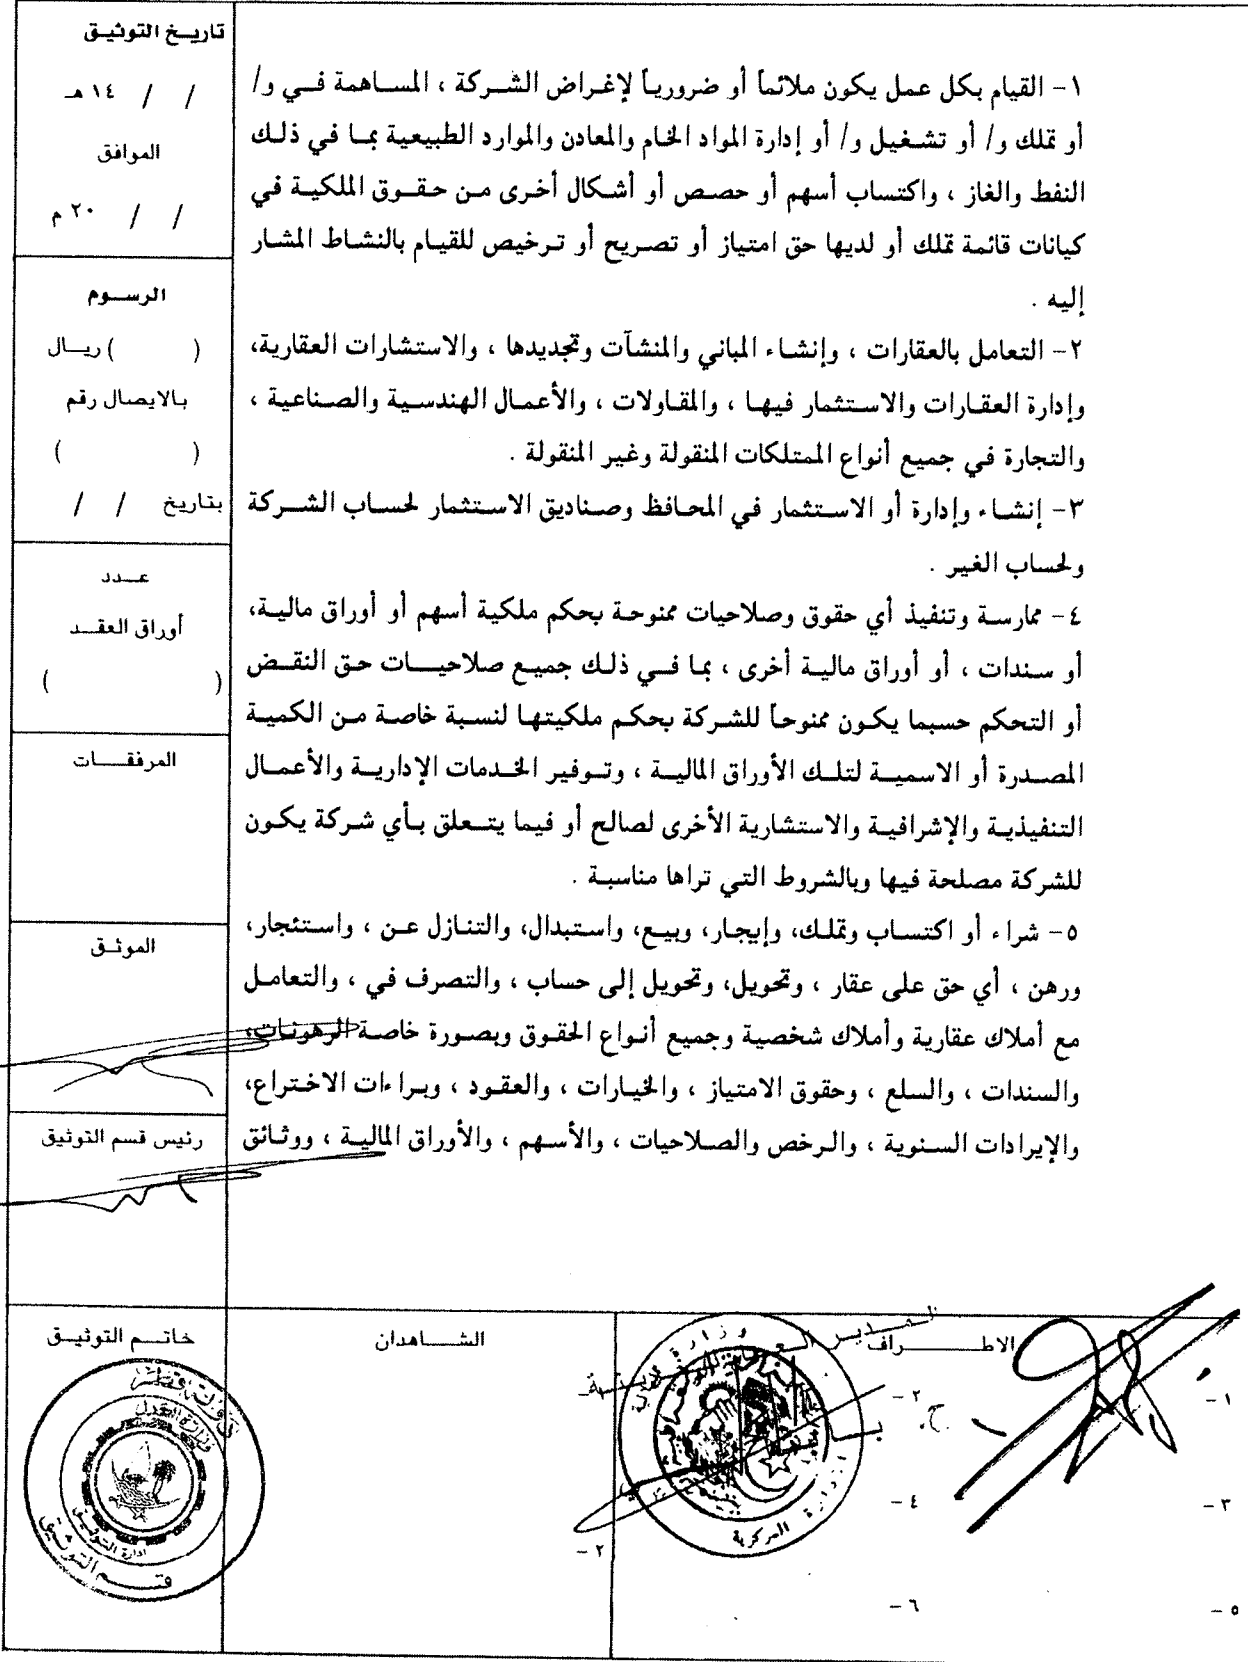 ١- القيام بكل عمل يكون ملائماً أو ضرورياً لإغراض الشركة ، المساهمة في و/
أو تملك و/ أو تشغيل و/ أو إدارة المواد الخام والمعادن والموارد الطبيعية بما في ذلك
النفط والغاز ، واكتساب أسهم أو حصص أو أشكال أخرى من حقوق الملكية في
كيانات قائمة تملك أو لديها حق امتياز أو تصريح أو ترخيص للقيام بالنشاط المشار
إليه .
٢- التعامل بالعقارات ، وإنشاء المباني والمنشآت وتجديدها ، والاستشارات العقارية،
وإدارة العقارات والاستثمار فيها ، والمقاولات ، والأعمال الهندسية والصناعية ،
والتجارة في جميع أنواع الممتلكات المنقولة وغير المنقولة .
٣- إنشاء وإدارة أو الاستثمار في المحافظ وصناديق الاستثمار لحساب الشركة
ولحساب الغير .
٤- ممارسة وتنفيذ أي حقوق وصلاحيات ممنوحة بحكم ملكية أسهم أو أوراق مالية،
أو سندات ، أو أوراق مالية أخرى ، بما في ذلك جميع صلاحيات حق النقض
أو التحكم حسبما يكون ممنوحاً للشركة بحكم ملكيتها لنسبة خاصة من الكمية
المصدرة أو الاسمية لتلك الأوراق المالية ، وتوفير الخدمات الإدارية والأعمال
التنفيذية والإشرافية والاستشارية الأخرى لصالح أو فيما يتعلق بأي شركة يكون
للشركة مصلحة فيها وبالشروط التي تراها مناسبة .
٥- شراء أو اكتساب وتملك، وإيجار، وبيع، واستبدال، والتنازل عن ، واستئجار،
ورهن ، أي حق على عقار ، وتحويل، وتحويل إلى حساب ، والتصرف في ، والتعامل
مع أملاك عقارية وأملاك شخصية وجميع أنواع الحقوق وبصورة خاصة الرهونات،
والسندات ، والسلع ، وحقوق الامتياز ، والخيارات ، والعقود ، وبراءات الاختراع،
والإيرادات السنوية ، والرخص والصلاحيات ، والأسهم ، والأوراق المالية ، ووثائق
تاريخ التوثيق
/ / ١٤ هـ
الموافق
/ / ٢٠ م
الرسوم
( ) ريال
بالايصال رقم
( )
بتاريخ / /
عدد
أوراق العقد
( )
المرفقات
الموثق
رئيس قسم التوثيق
الاطراف
١ -
٢ -
٣ -
٤ -
٥ -
٦ -
الشاهدان
٢ -
خاتم التوثيق
دولة قطر
وزارة العدل
ادارة التوثيق
قسم التوثيق